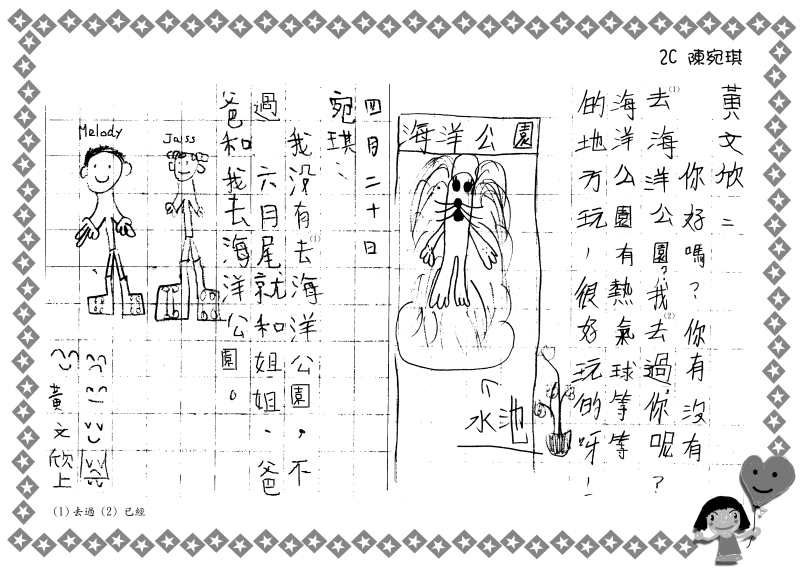 2C 陳宛琪
黃文欣：
你好嗎？你有沒有
去(1)海洋公園？我去(2)過，你呢？
海洋公園有熱氣球等等
的地方玩，很好玩的呀！
海洋公園
水池
四月二十日
宛琪：
我沒有去(1)海洋公園，不
過六月尾就和姐姐、爸
爸和我去海洋公園。
Melody
Jass
黃文欣上
(1)去過 (2) 已經